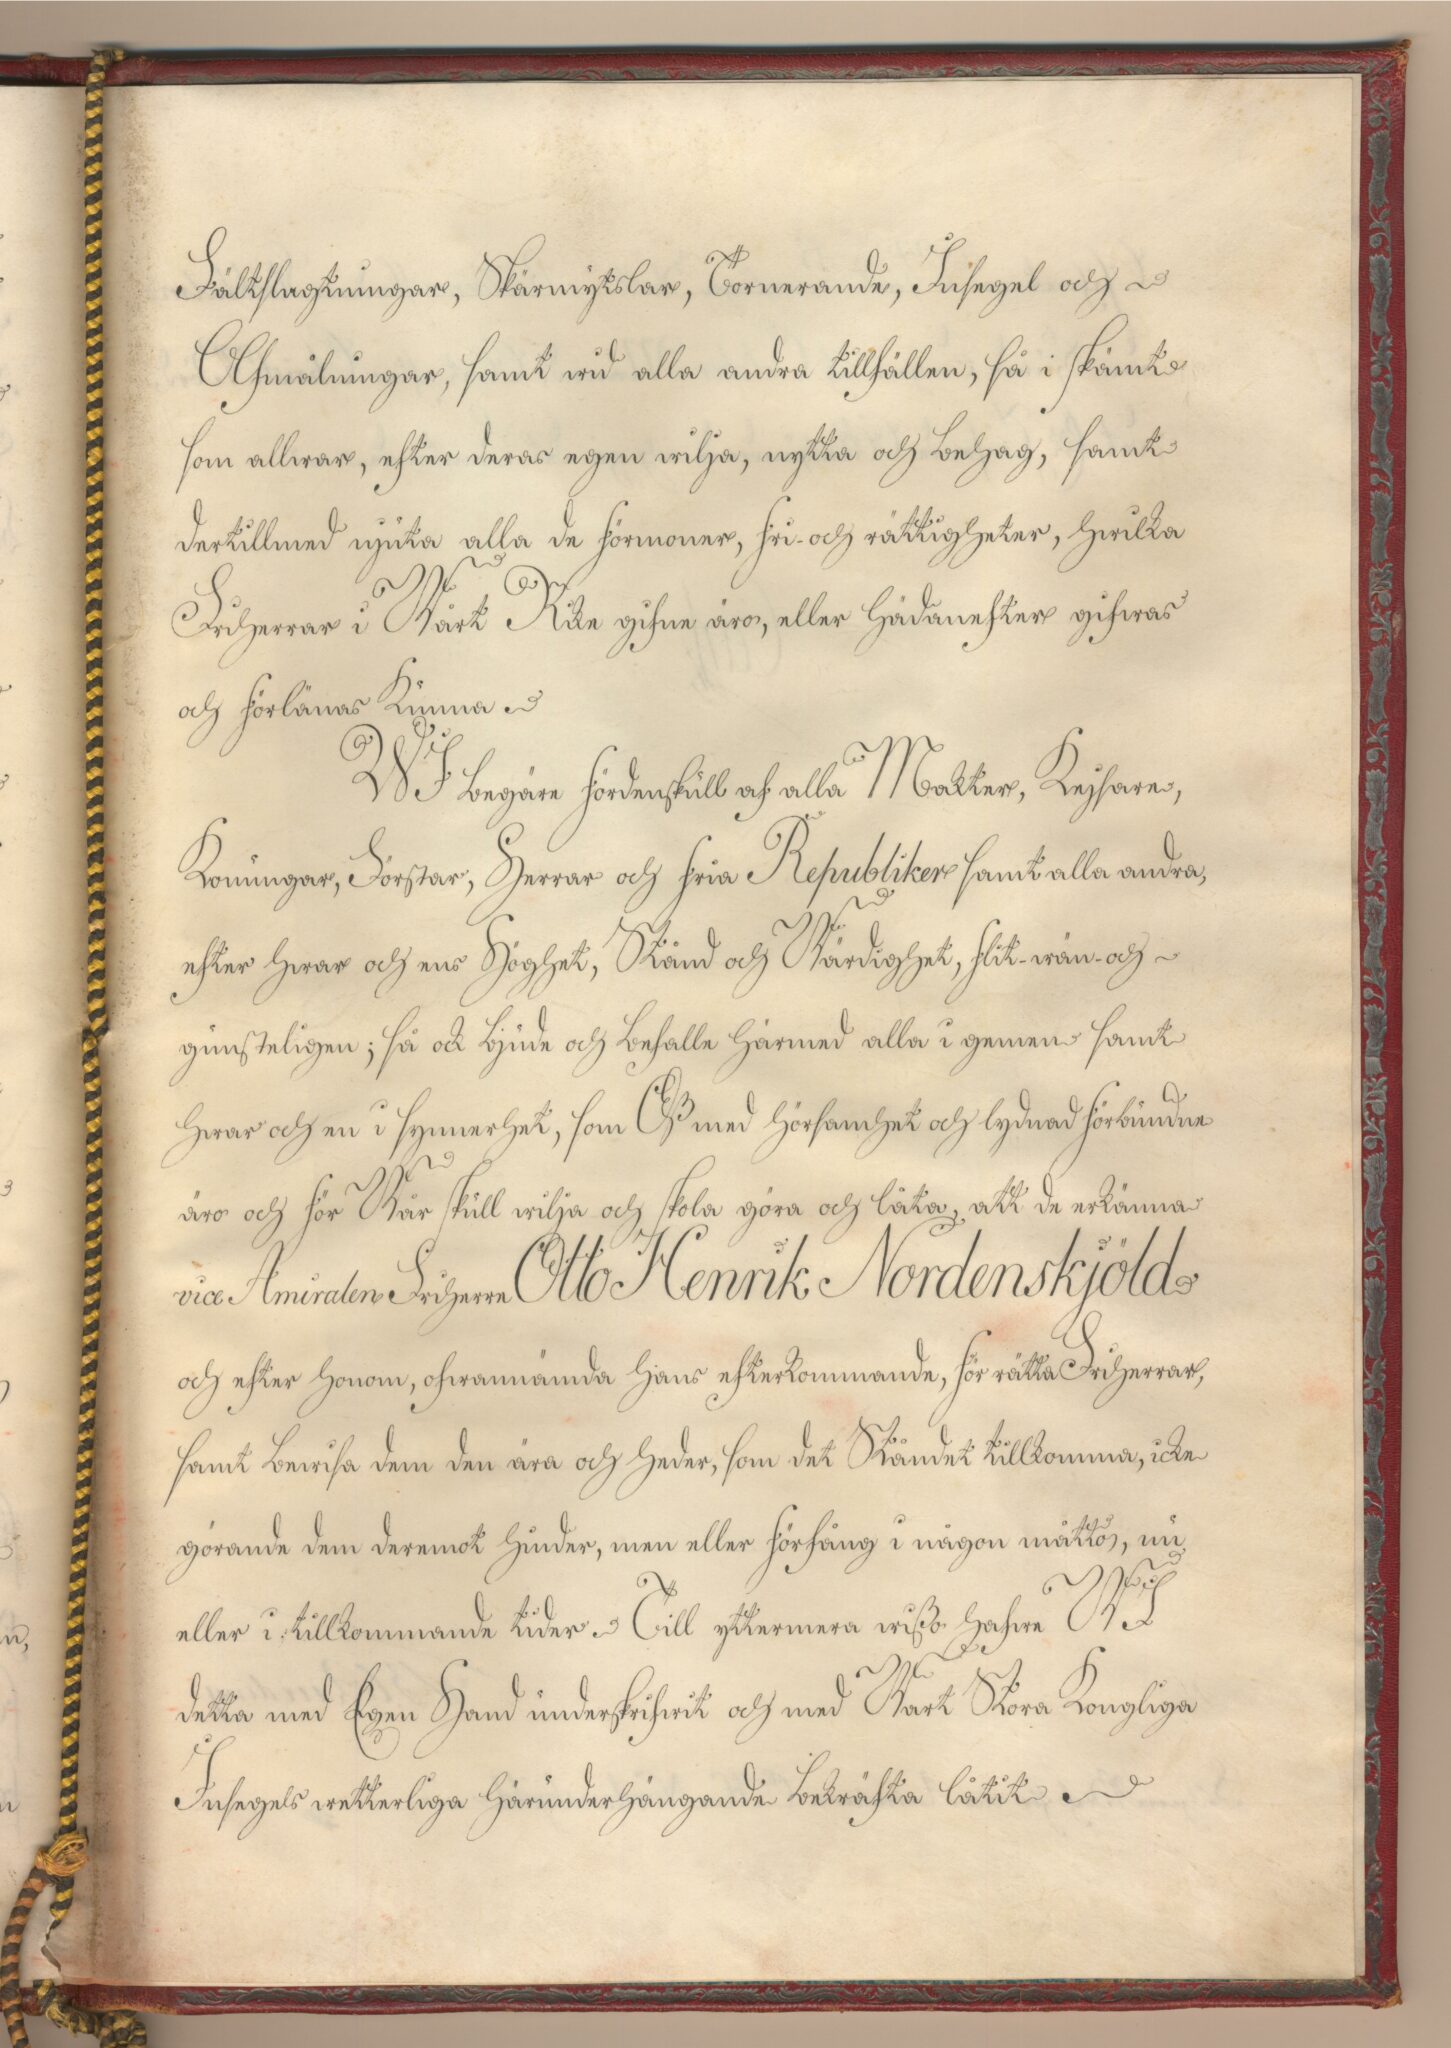 Fältslagtningar, Skärmytslar, Tornerande, Insegel och
Afmålningar, samt wid alla andra tillfällen, så i skämt
som allwar, efter deras egen wilja, nytta och behag, samt
dertillmed njuta alla de förmoner, fri- och rättigheter, hwilka
Friherrar i Wårt Rike gifne äro, eller hädanefter gifwas
och förlänas kunna
WJ begäre fördenskull af alla Makter, Keysare,
Konungar, Förstar, Herrar och fria Republiker samt alla andra,
efter hwar och ens Höghet, Stånd och Wärdighet, flit- wän- och
gunsteligen; så ock bjude och befalle härmed alla i gemen samt
hwar och en i synnerhet, som Oß med hörsamhet och lydnad förbundne
äro och för Wår skull wilja och skola göra och låta, att de erkänna
vice Amiralen Friherre Otto Henrik Nordenskjöld
och efter honom, ofwannämda hans efterkommande, för rätta Friherrar,
samt bewisa dem den ära och heder, som det Ståndet tillkomma, icke
görande dem deremot hinder, men eller förfång i någon måtto, nu
eller i tillkommande tider. Till yttermera wißo hafwe WJ
detta med Egen Hand underskrifwit och med Wårt Stora Kongliga
Insegels wetterliga härunderhängande bekräfta låtit